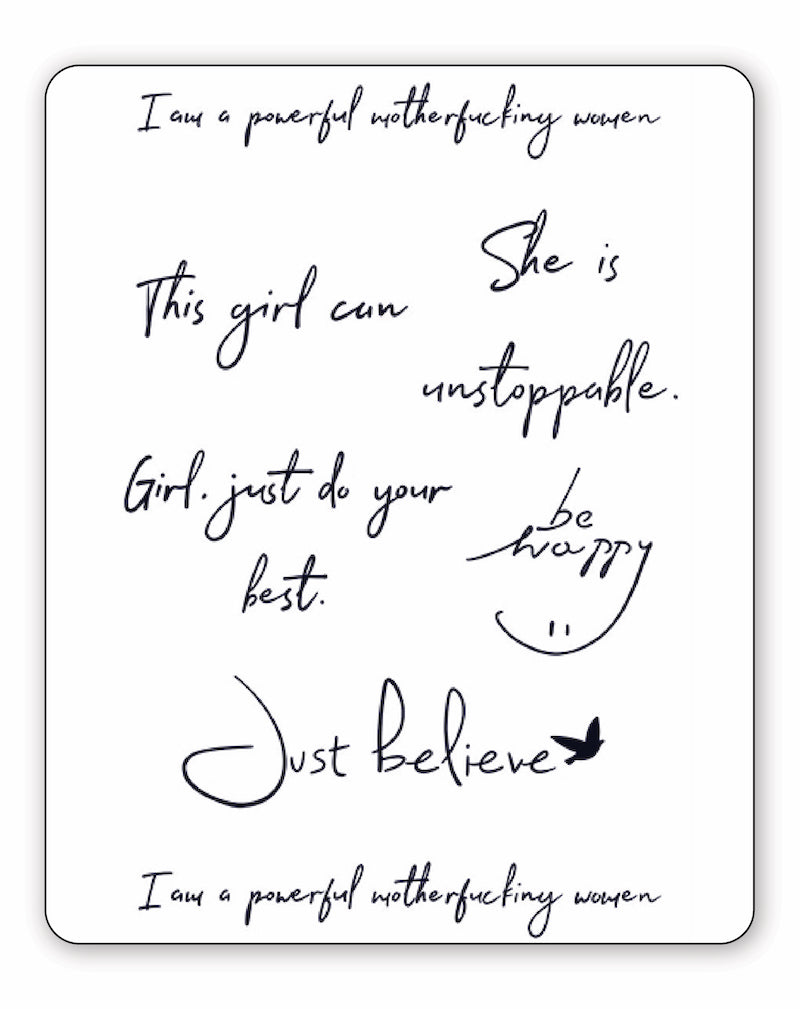 I am a powerful motherfucking women
She is
This girl can
unstoppable.
Girl. just do your
best.
be
happy
Just believe
I am a powerful motherfucking women